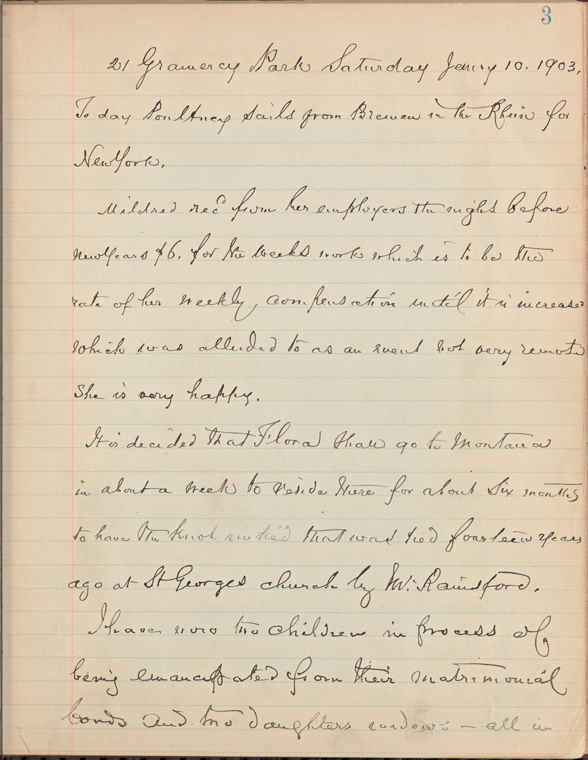 3
21 Gramercy Park Saturday Jany 10. 1903,
To day Poultney sails from Bremen in the Rhein for
New York.
Mildred rec'd from her employers the night before
New Years $6. for the weeks work which is to be the
rate of her weekly compensation until it is increased
which was alluded to as an event not very remote
She is very happy.
It is decided that Flora shall go to Montana
in about a week to reside there for about six months
to have the knot untied that was tied fourteen years
ago at St Georges church by Mr. Rainsford.
I have now two children in process of
being emancipated from their matrimonial
bonds and two daughters widows - all in